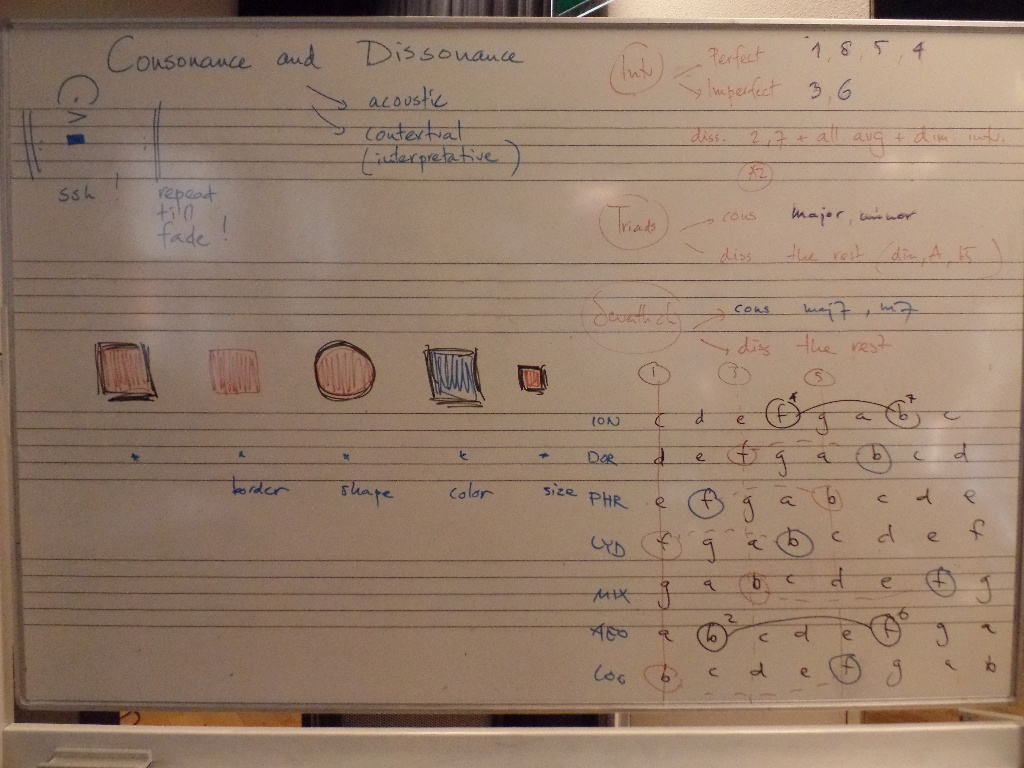 Consonance and Dissonance
acoustic
contextual
(interpretative)
ssh!
repeat
till
fade!
Int
Perfect 1, 8, 5, 4
Imperfect 3, 6
diss. 2, 7 + all aug + dim. intv.
Triads
cons major, minor
diss the rest (dim, A, b5)
cons maj7, m7
diss the rest
border shape color size
1 3 5
ION c d e f4 g a b7 c
DOR d e f g a b c d
PHR e f g a b c d e
LYD f g a b c d e f
MIX g a b c d e f g
AEO a b2 c d e f6 g a
LOC b c d e f g a b